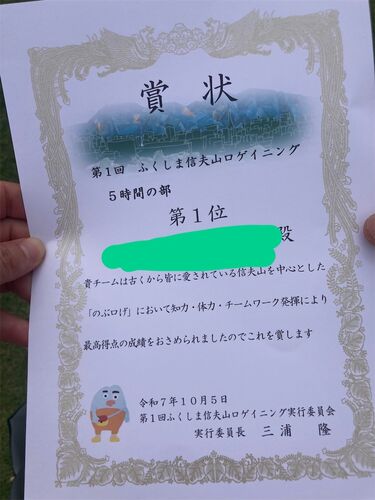 賞状
第1回 ふくしま信夫山ロゲイニング
5時間の部
第1位
殿
貴チームは古くから皆に愛されている信夫山を中心とした
「のぶロゲ」において知力・体力・チームワーク発揮により
最高得点の成績をおさめられましたのでこれを賞します
令和7年10月5日
第1回ふくしま信夫山ロゲイニング実行委員会
実行委員長 三浦 隆